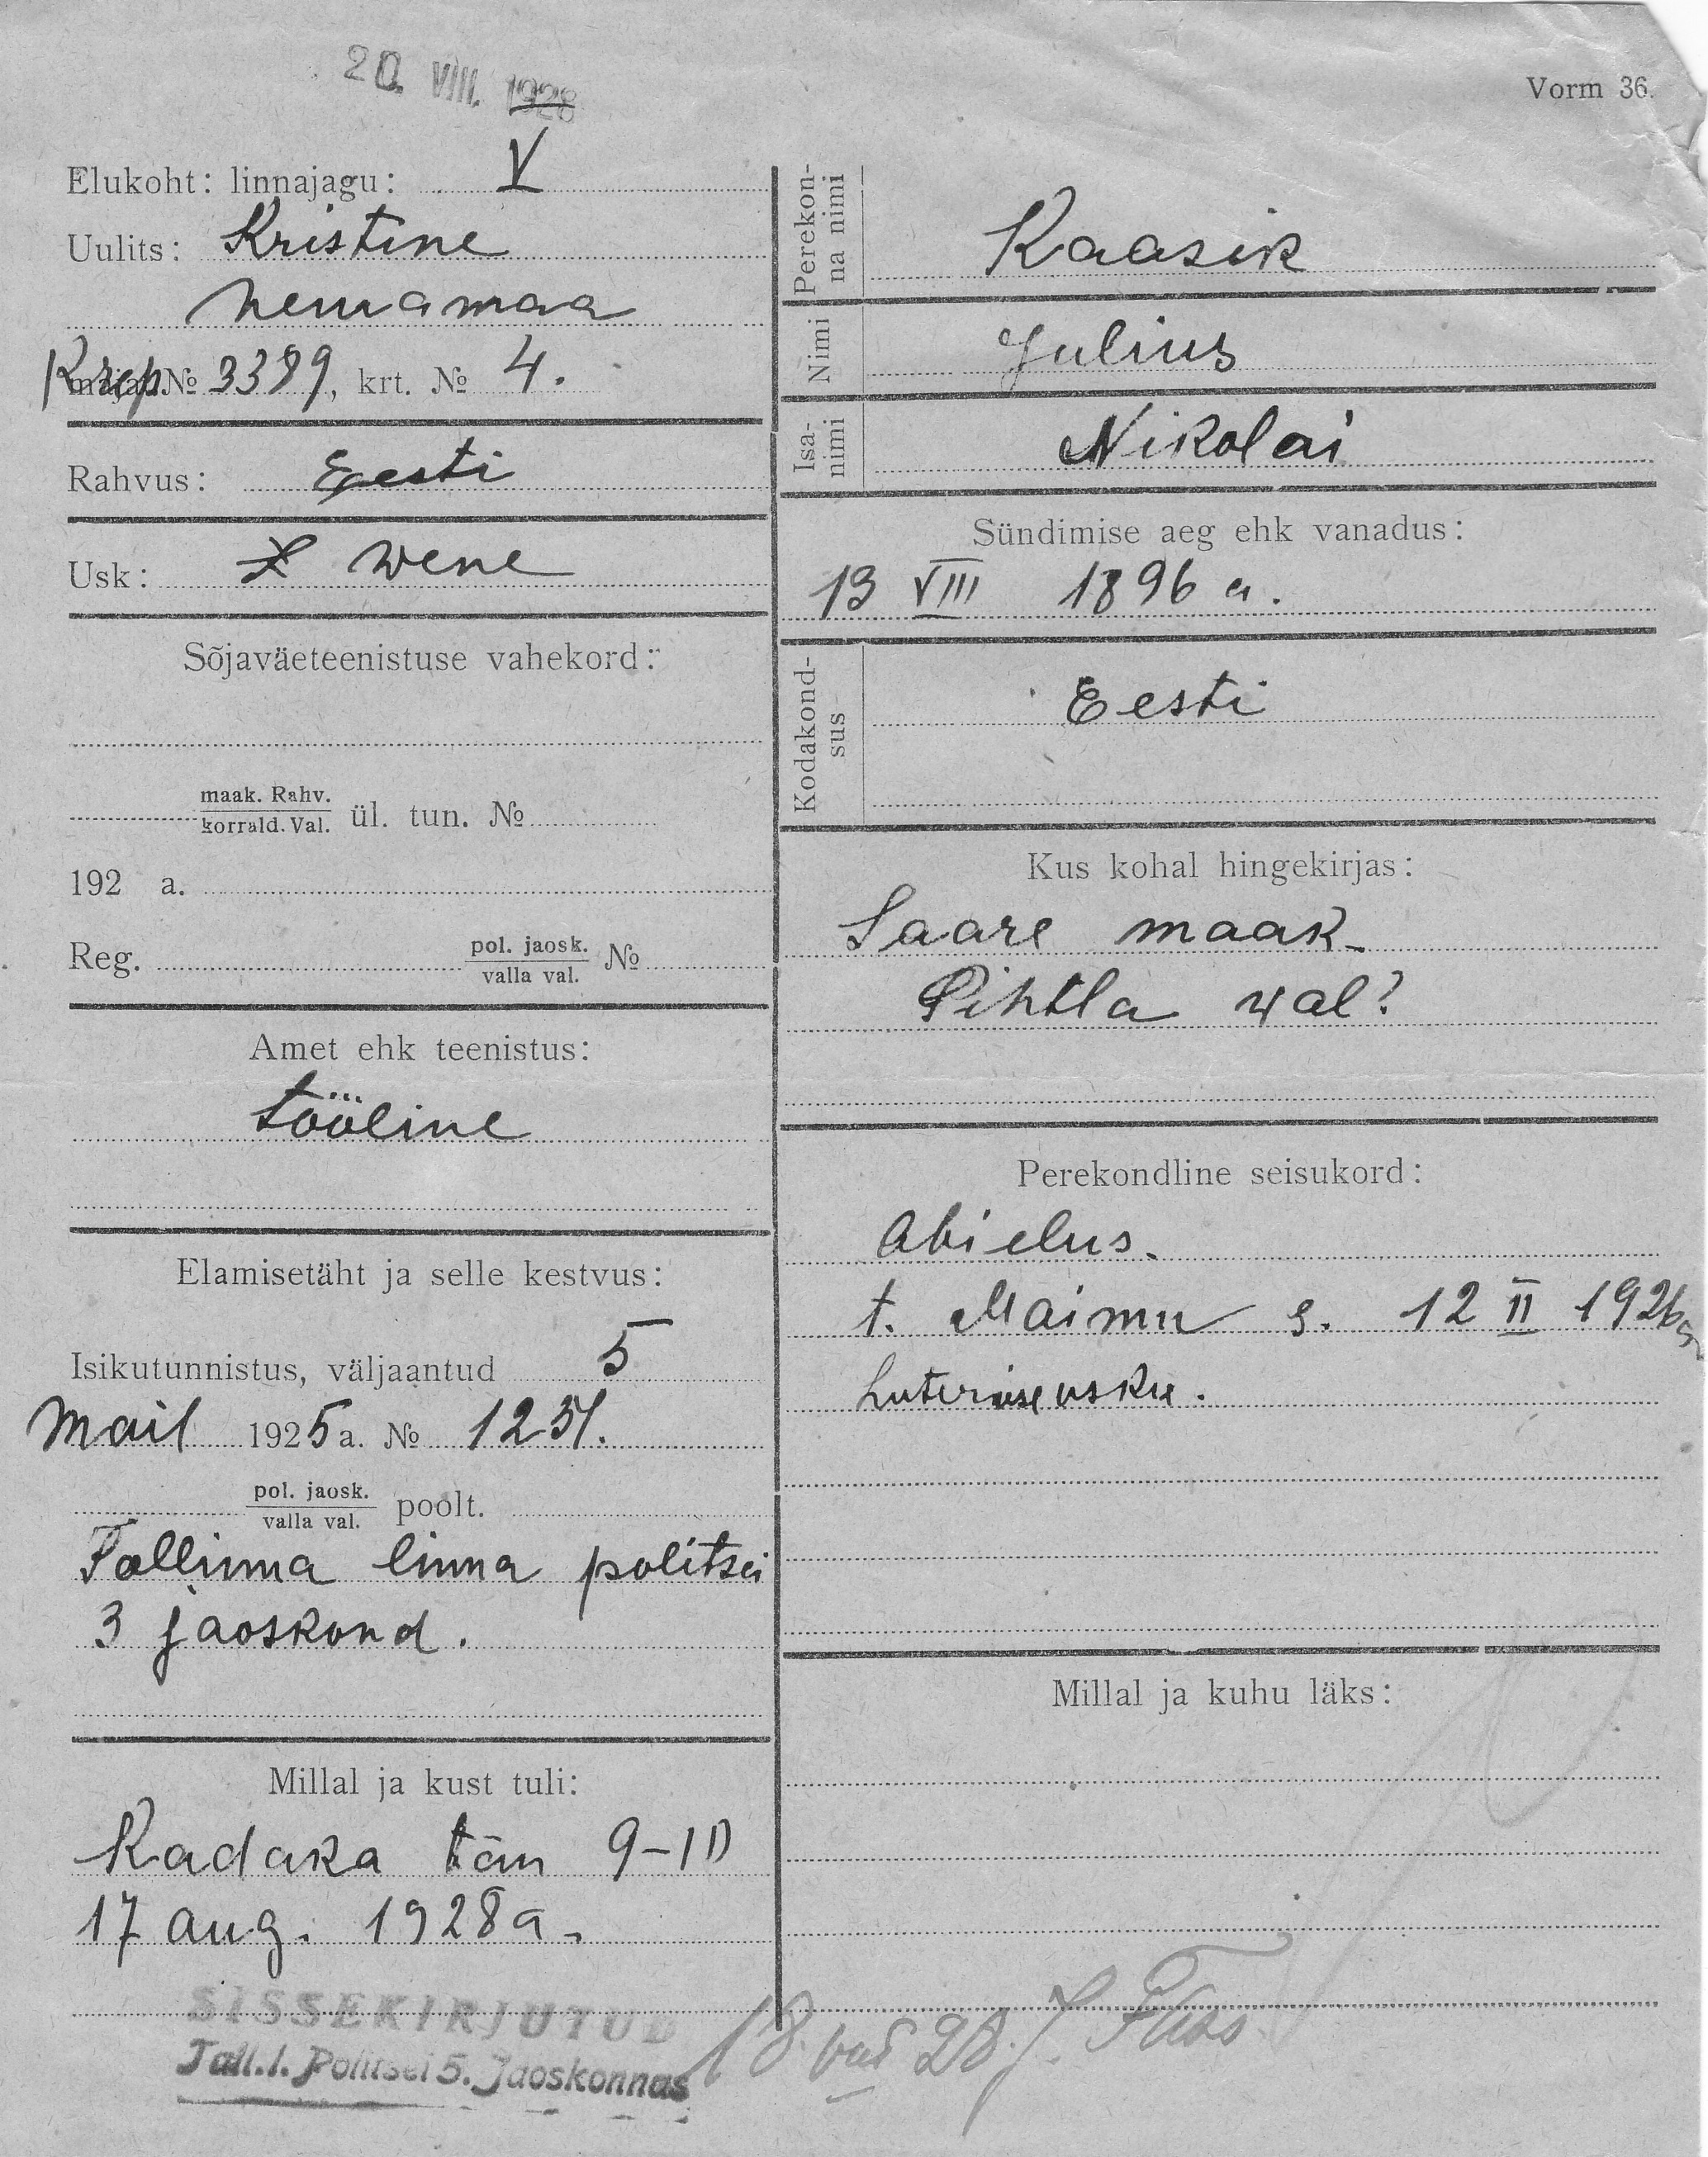 20. VIII. 1928
Vorm 36.
Elukoht: linnajagu: V
Uulits: Kristine
heinamaa
Krep. № 3389, krt. № 4.
Rahvus: Eesti
Usk: wene
Sõjaväeteenistuse vahekord:
maak. Rahv.
korrald. Val. ül. tun. №
192 a.
Reg. pol. jaosk. №
valla val.
Amet ehk teenistus:
tööline
Elamisetäht ja selle kestvus:
Isikutunnistus, väljaantud 5
Mail 1925 a. №
pol. jaosk. poolt.
valla val.
Tallinna linna politsei
3 jaoskond.
Millal ja kust tuli:
Kadaka tän 9-10
17 aug. 1928 a.
SISSEKIRJUTUD
Tall. l. Politsei 5. Jaoskonnas
Perekon-
na nimi
Kaasik
Nimi Julius
Isa-
nimi
Nikolai
Sündimise aeg ehk vanadus:
13 VIII 1896 a.
Kodakond-
sus
Eesti
Kus kohal hingekirjas:
Saare maak.
Pihtla wal?
Perekondline seisukord:
Abielus.
t. Maimu s. 12 II 1926 a
Luteriuse usku.
Millal ja kuhu läks:
18. 28. J.